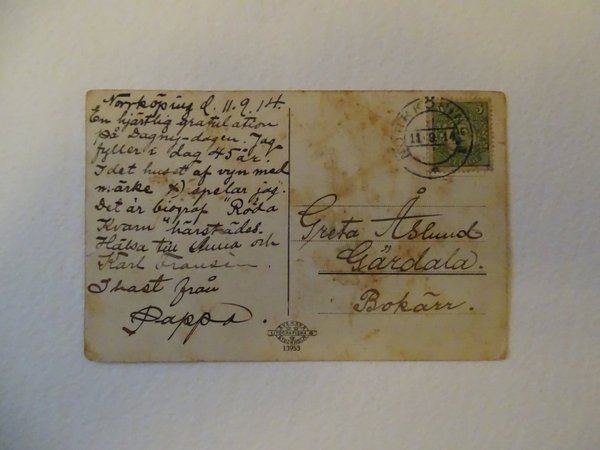 Norrköping d. 11.9.14.
En hjärtlig gratulation
på Dagny-dagen. Jag
fyller i dag 45 år.
I det huset af vyn med
märke x) spelar jag.
Det är biograf "Röda
Kvarn" härstädes.
Hälsa till Anna och
Karl Fransén.
I hast från
Pappa.
NORRKÖPING
11.9.14
5
Greta Åslund
Gärdala.
Bokärr.
SVENSKA
LITOGRAFISKA
STOCKHOLM
13953